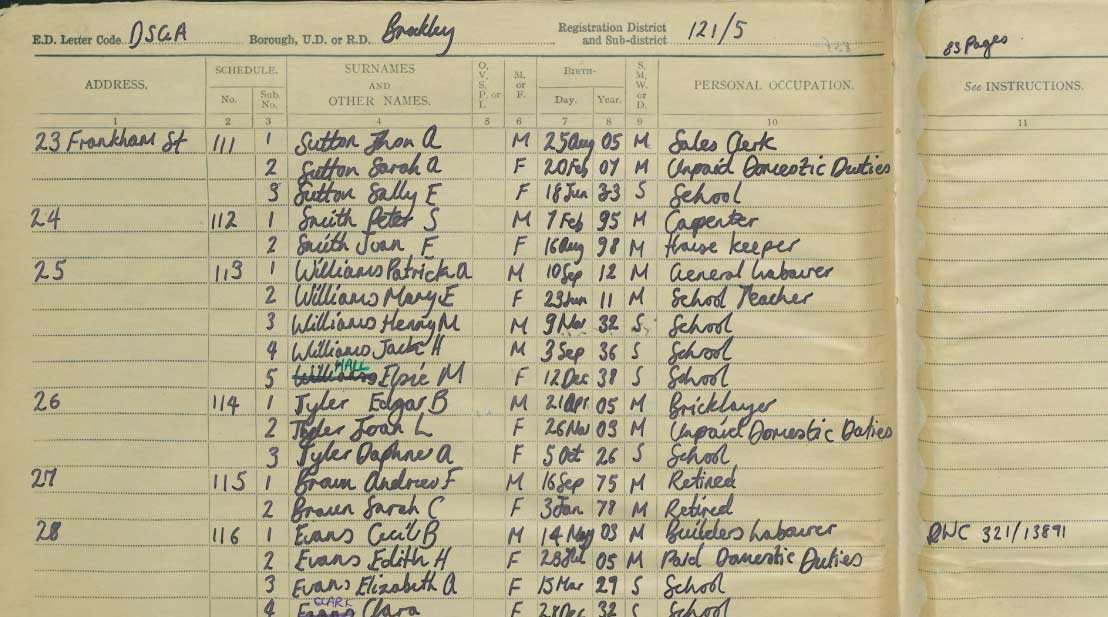 E.D. Letter Code DSGA Borough, U.D. or R.D. Brockley Registration District and Sub-district 121/5
83 Pages
ADDRESS. SCHEDULE. No. Sub. No. SURNAMES AND OTHER NAMES. O, V, S, P, or I. M. or F. BIRTH- Day. Year. S, M, W, or D. PERSONAL OCCUPATION. See INSTRUCTIONS.
1 2 3 4 5 6 7 8 9 10 11
23 Frankham St 111 1 Sutton Jhon A M 25 Aug 05 M Sales Clerk
2 Sutton Sarah A F 20 Feb 07 M Unpaid Domestic Duties
3 Sutton Sally E F 18 Jun 33 S School
24 112 1 Smith Peter S M 7 Feb 95 M Carpenter
2 Smith Joan F F 16 Aug 98 M House keeper
25 113 1 Williams Patrick A M 10 Sep 12 M General Labourer
2 Williams Mary E F 23 Jun 11 M School Teacher
3 Williams Henry M M 9 Mar 32 S School
4 Williams Jack H M 3 Sep 36 S School
HALL
5 Williams Elsie M F 12 Dec 38 S School
26 114 1 Tyler Edgar B M 21 Apr 05 M Bricklayer
2 Tyler Joan L F 26 Nov 03 M Unpaid Domestic Duties
3 Tyler Daphne A F 5 Oct 26 S School
27 115 1 Braun Andrew F M 16 Sep 75 M Retired
2 Braun Sarah C F 3 Jan 78 M Retired
28 116 1 Evans Cecil B M 14 May 03 M Builders Labourer RNC 321/13891
2 Evans Edith H F 23 Jul 05 M Paid Domestic Duties
3 Evans Elizabeth A F 15 Mar 29 S School
CLARK
4 Evans Clara F 28 Dec 32 S School